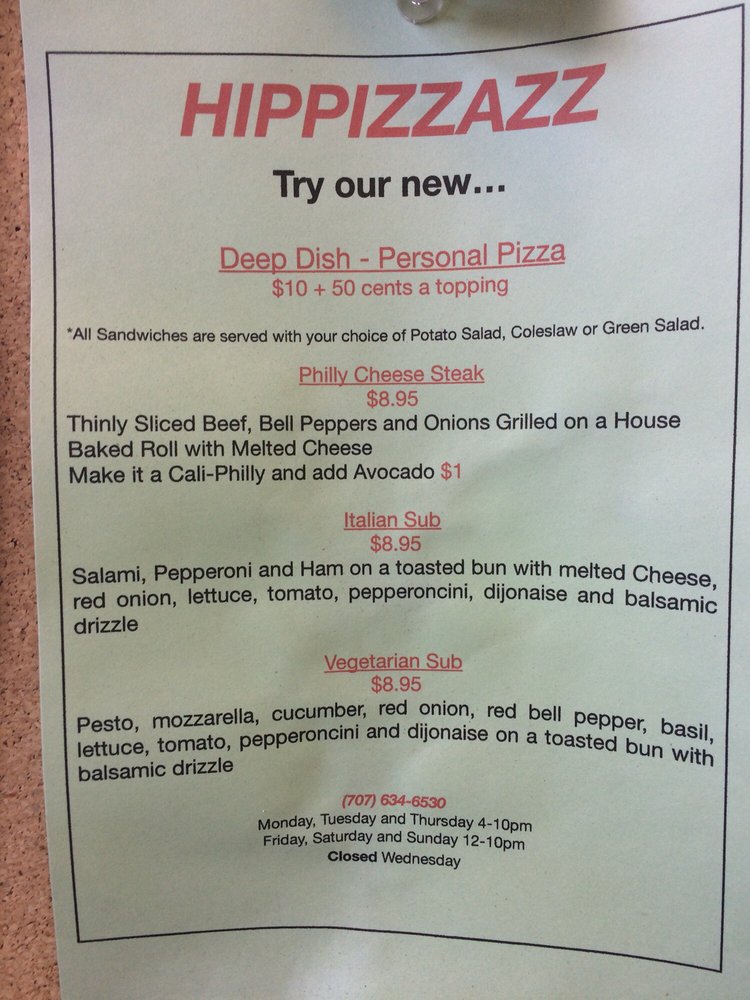 HIPPIZZAZZ
Try our new...
Deep Dish - Personal Pizza
$10 + 50 cents a topping
*All Sandwiches are served with your choice of Potato Salad, Coleslaw or Green Salad.
Philly Cheese Steak
$8.95
Thinly Sliced Beef, Bell Peppers and Onions Grilled on a House
Baked Roll with Melted Cheese
Make it a Cali-Philly and add Avocado $1
Italian Sub
$8.95
Salami, Pepperoni and Ham on a toasted bun with melted Cheese,
red onion, lettuce, tomato, pepperoncini, dijonaise and balsamic
drizzle
Vegetarian Sub
$8.95
Pesto, mozzarella, cucumber, red onion, red bell pepper, basil,
lettuce, tomato, pepperoncini and dijonaise on a toasted bun with
balsamic drizzle
(707) 634-6530
Monday, Tuesday and Thursday 4-10pm
Friday, Saturday and Sunday 12-10pm
Closed Wednesday